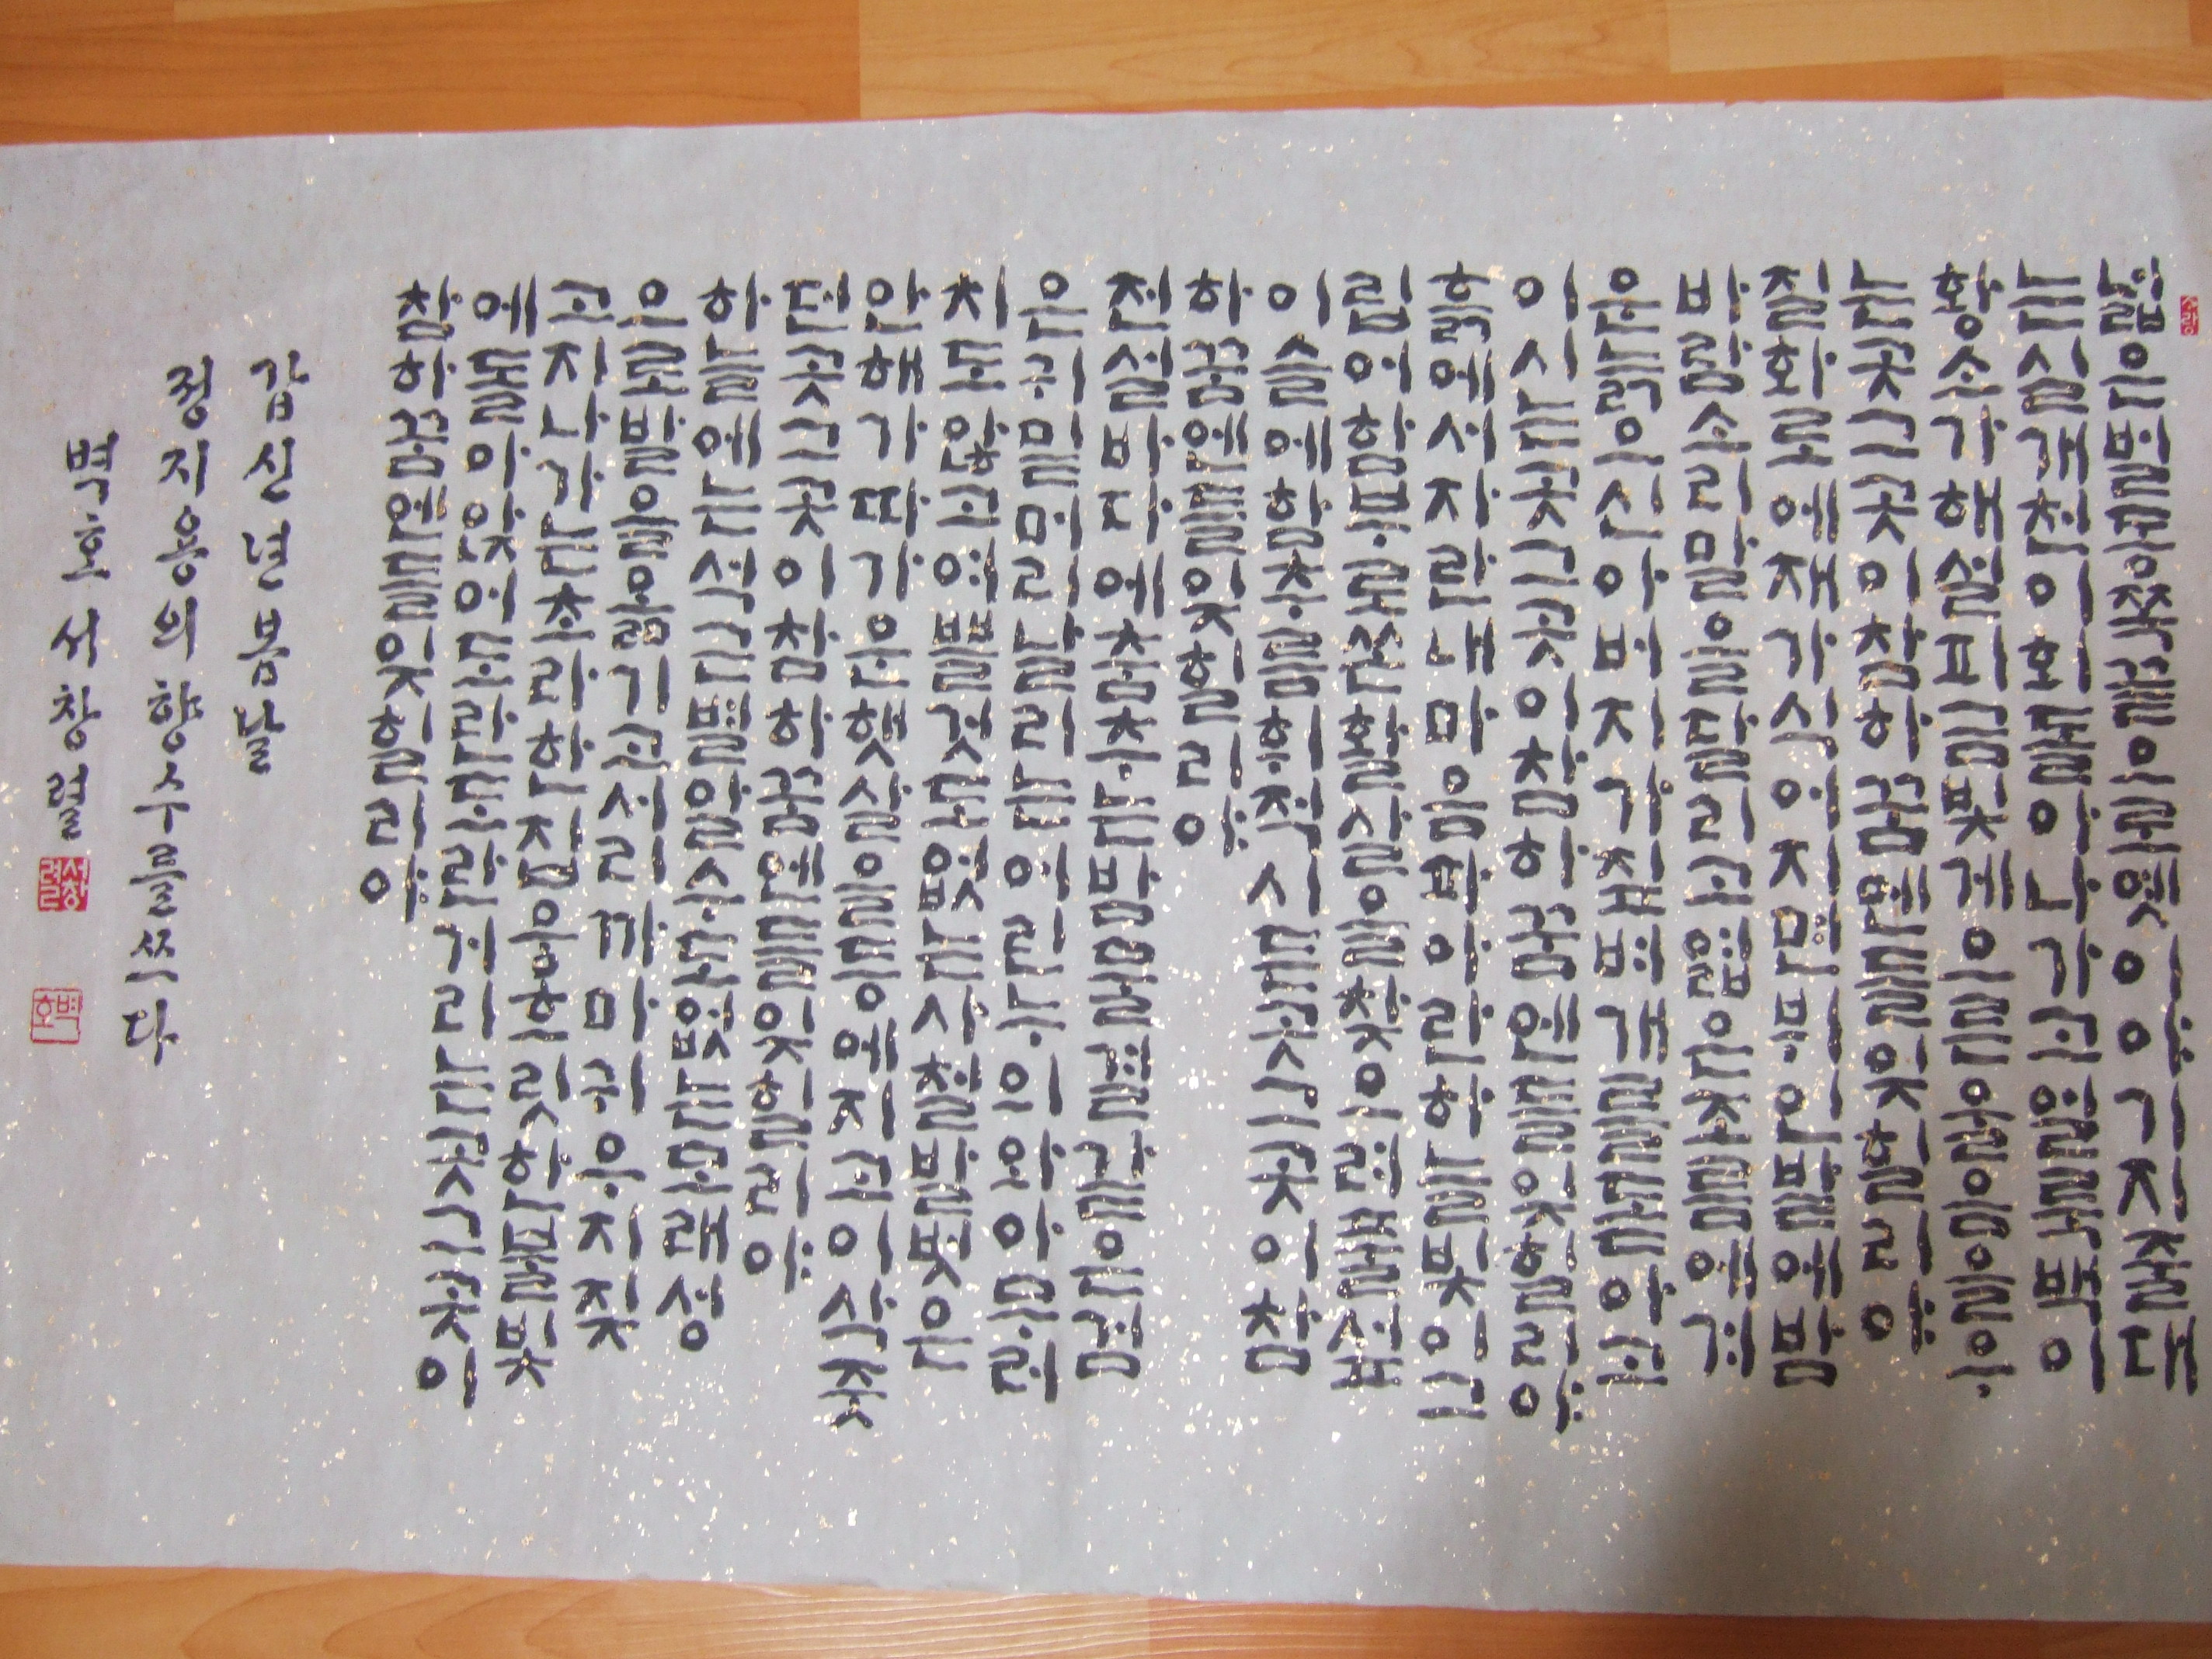 넓은벌동쪽끝으로옛이야기지줄대
는실개천이휘돌아나가고얼룩백이
황소가해설피금빛게으른울음을우
는곳그곳이참하꿈엔들잊힐리야
질화로에재가식어지면뷔인밭에밤
바람소리말을달리고엷은조름에겨
운늙으신아버지가짚벼개를돋아고
이시는곳그곳이참하꿈엔들잊힐리야
흙에서자란내마음파아란하늘빛이그
립어함부로쏜활살을찾으려풀섶
이슬에함추름휘적시든곳그곳이참
하꿈엔들잊힐리야
전설바다에춤추는밤물결같은검
은귀밑머리날리는어린누의와아무러
치도않고여쁠것도없는사철발벗은
안해가따가운햇살을등에지고이삭줏
던곳그곳이참하꿈엔들잊힐리야
하늘에는석근별알수도없는모래성
으로발을옮기고서리까마귀우지짖
고지나가는초라한집웅흐릿한불빛
에돌아앉어도란도란거리는곳그곳이
참하꿈엔들잊힐리야
갑신년봄날
정지용의향수를쓰다
벽호서창렬
서창렬
벽호